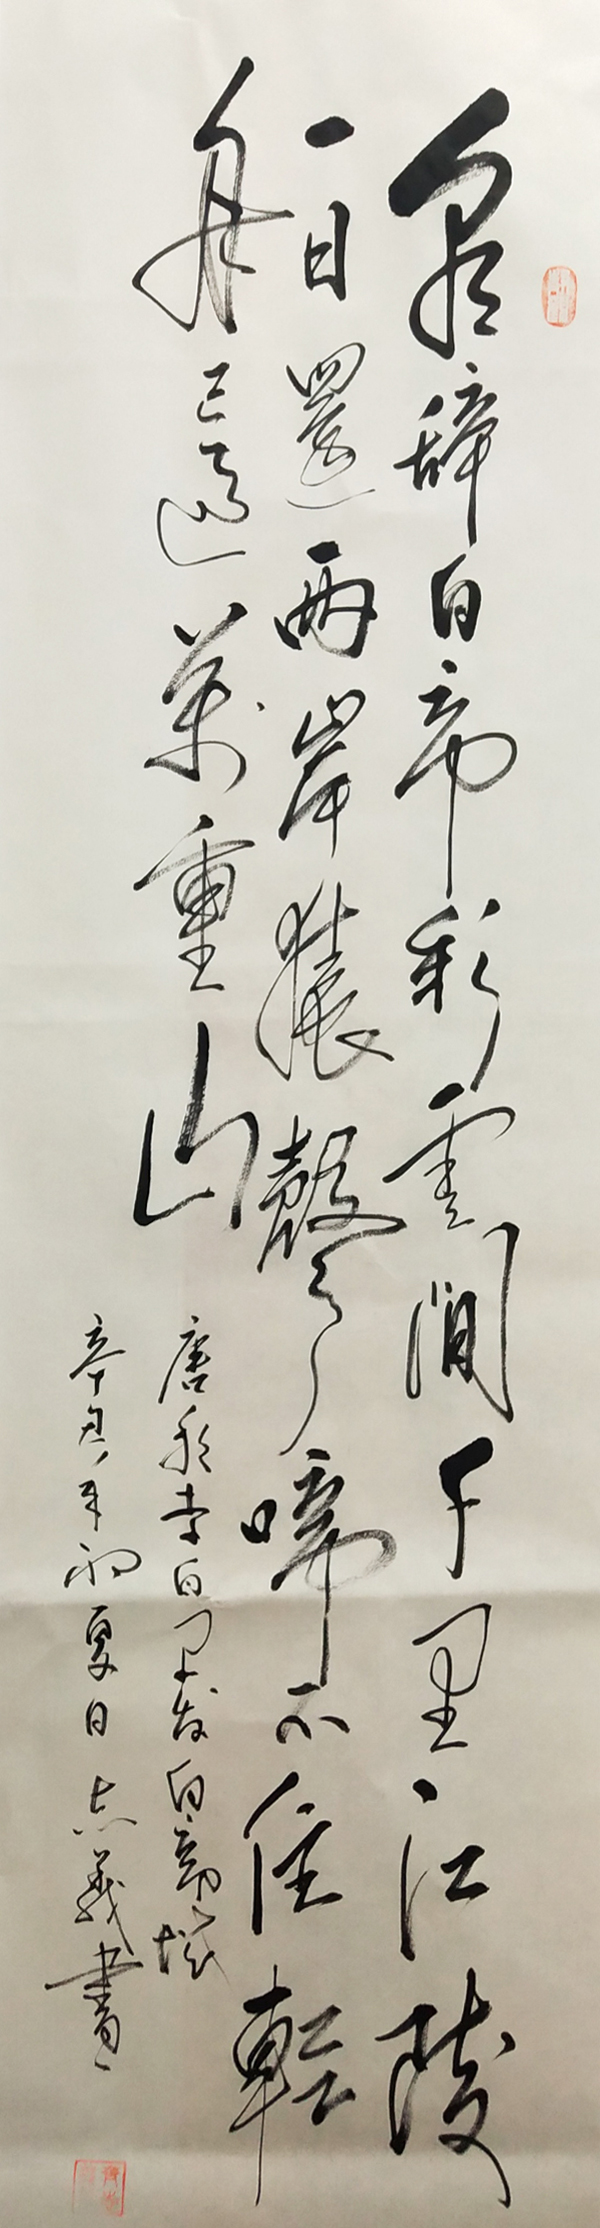 朝辞白帝彩雲間千里江陵
一日還兩岸猿聲啼不住輕
舟已過萬重山
唐朝李白早发白帝城
辛丑年初夏日志義書